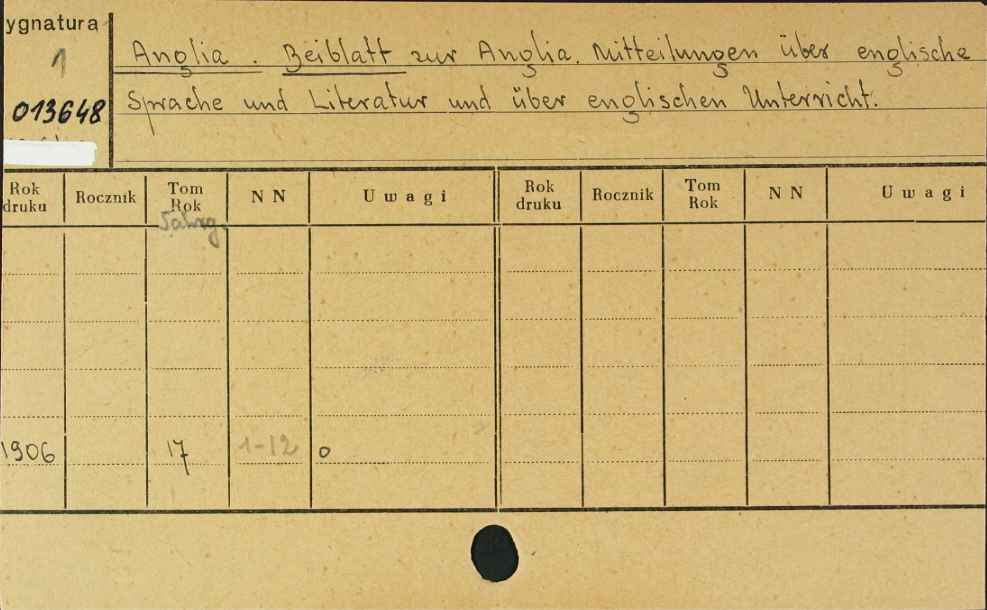 ygnatura
1
Anglia. Beiblatt zur Anglia. Mitteilungen über englische
013648
Sprache und Literatur und über englischen Unterricht.
Rok druku Rocznik Tom Rok N N Uwagi Rok druku Rocznik Tom Rok N N Uwagi
Jahrg.
1906 17 1-12 o